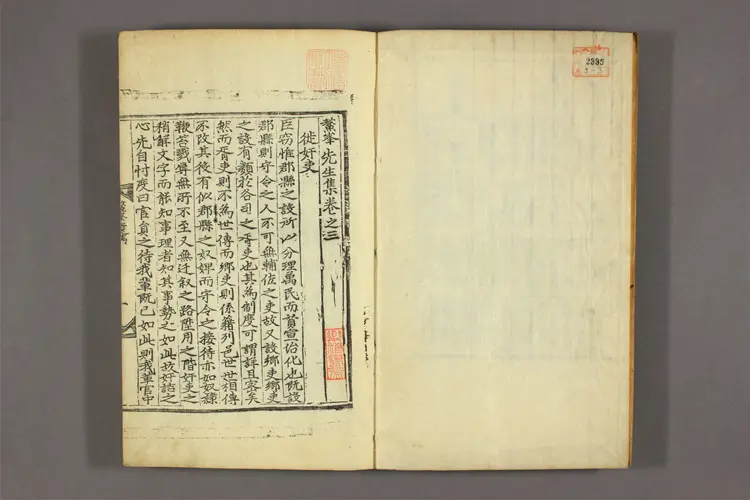 鰲峯先生集卷之三
徙奸吏
臣窃惟郡縣之設所以分理萬民而贊宣治化也既設
郡縣則守令之人不可無輔佐之吏故又設鄉吏鄉吏
之設有類於各司之胥吏也其爲制度可謂詳且密矣
然而胥吏則不爲世傳而鄉吏則係籍列邑世世相傳
不改其後有似郡縣之奴婢而守令之接待亦如奴隸
鞭笞戮辱無所不至又無迁叙之路陞用之階奸吏之
稍解文字而能知事理者知其事勢之如此故奸詰之
心先自忖度曰官員之待我輩既已如此則我輩官中
2885
3-3